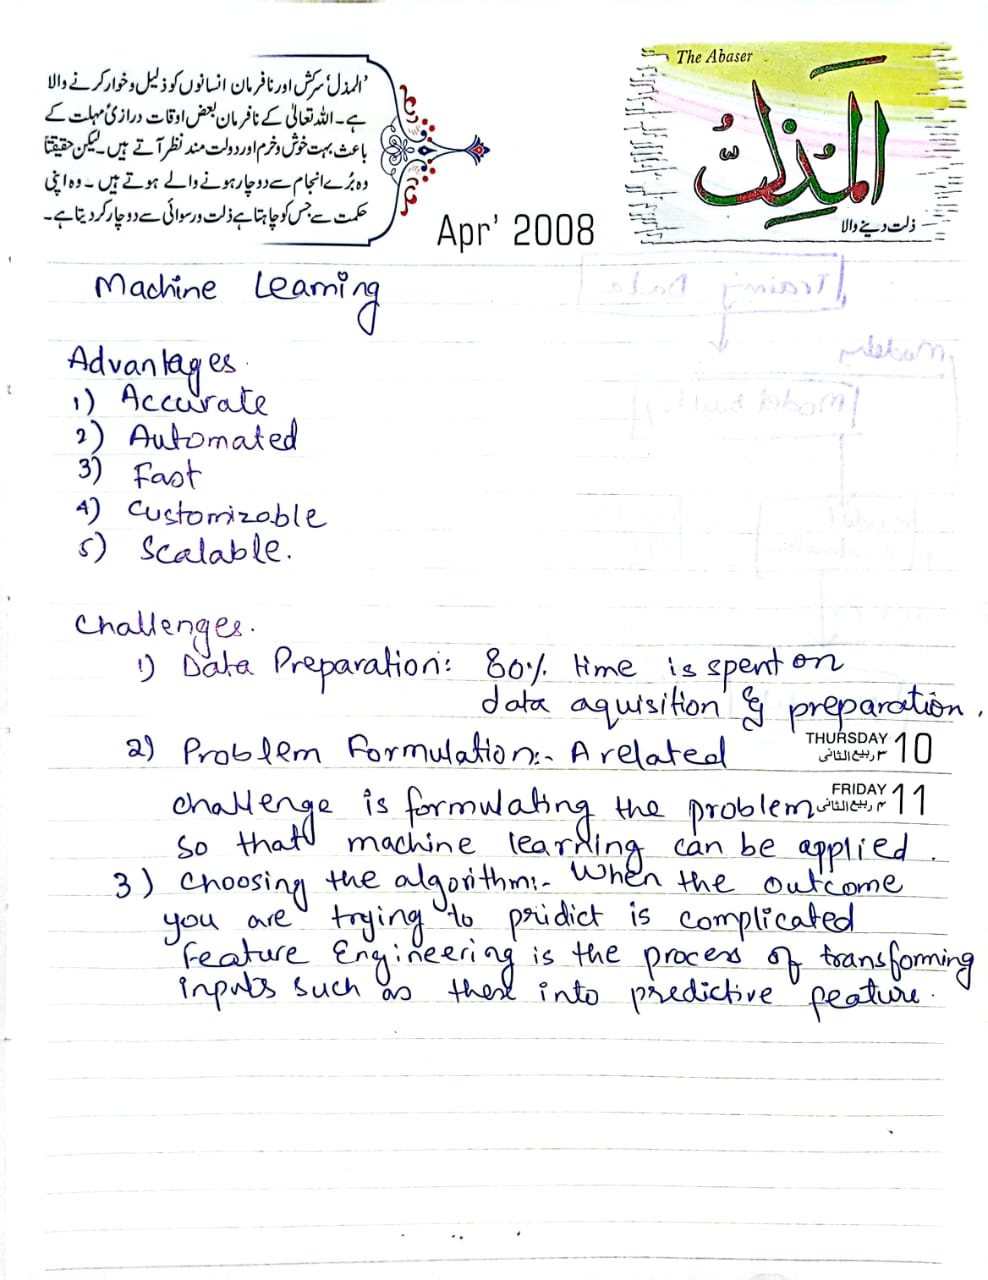 The Abaser
المذل
ذلت دینے والا
'المذل' سرکش اور نافرمان انسانوں کو ذلیل و خوار کرنے والا
ہے۔ اللہ تعالیٰ کے نافرمان بعض اوقات درازیٔ مہلت کے
باعث بہت خوش و خرم اور دولت مند نظر آتے ہیں۔ لیکن حقیقتاً
وہ بُرے انجام سے دوچار ہونے والے ہوتے ہیں۔ وہ اپنی
حکمت سے جس کو چاہتا ہے ذلت و رسوائی سے دوچار کر دیتا ہے۔
Apr' 2008
Machine Learning
Advantages.
1) Accurate
2) Automated
3) Fast
4) Customizable
5) Scalable.
Challenges.
1) Data Preparation: 80% time is spent on
data aquisition & preparation.
2) Problem Formulation:- A related
THURSDAY 10
۳ ربیع الثانی
challenge is formulating the problem
FRIDAY 11
۴ ربیع الثانی
so that machine learning can be applied.
3) Choosing the algorithm:- When the outcome
you are trying to pridict is complicated
Feature Engineering is the process of transforming
inputs such as these into predictive feature.
Training Data
Modeling